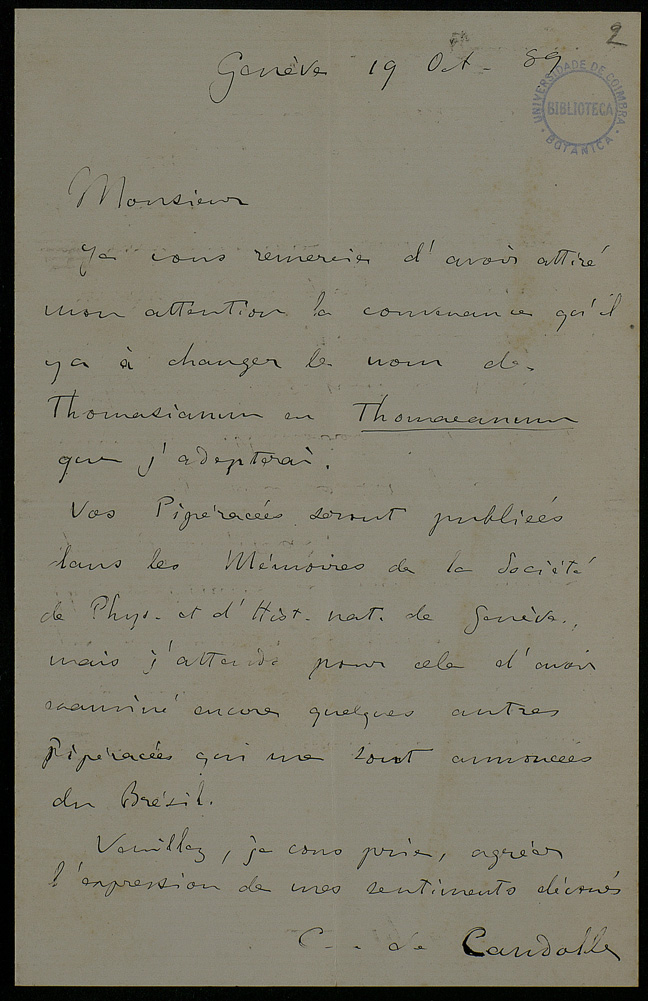 2
Genève 19 Oct. 89
UNIVERSIDADE DE COIMBRA
BIBLIOTECA
BOTANICA
Monsieur
Je vous remercie d'avoir attiré
mon attention la convenance qu'il
y a à changer le nom de
Thomasianum en Thomaeanum
que j'adopterai.
Vos Pipéracées seront publiées
dans les Mémoires de la Société
de Phys. et d'Hist. nat. de Genève,
mais j'attends pour cela d'avoir
examiné encore quelques autres
Pipéracées qui me sont annoncées
du Brésil.
Veuillez, je vous prie, agréer
l'expression de mes sentiments dévoués
C. de Candolle